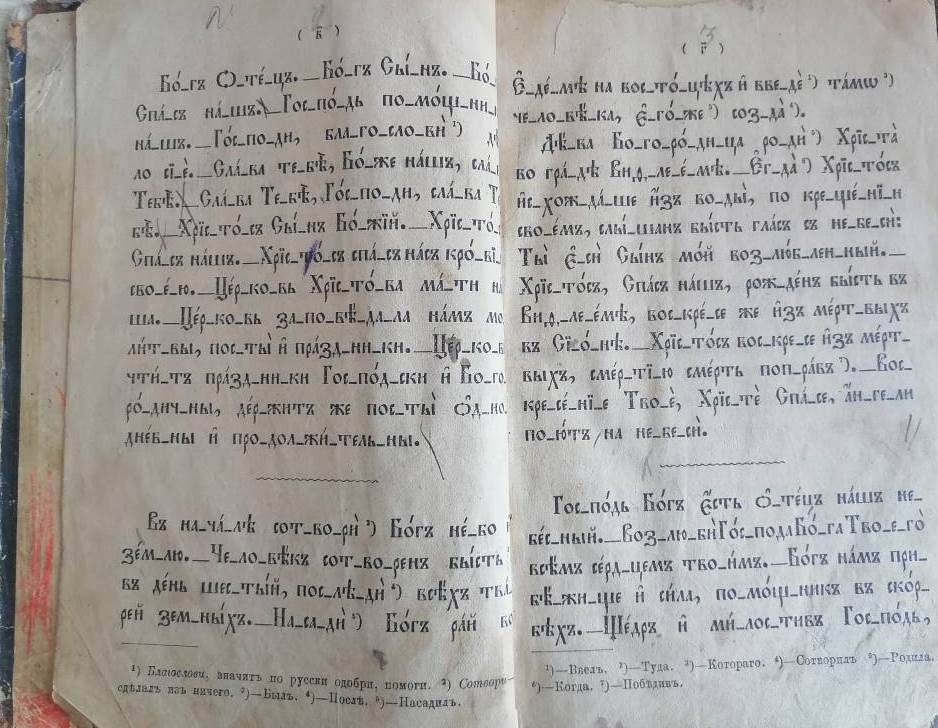 ( в҃ )
Бо́-гъ Ѻ-те́-цъ. — Бо́-гъ Сы́-нъ. — Бо́-
Спа́-съ на́-шъ. — Гос-по́-дь по-мо́щ-ни-
на́-шъ. — Го́с-по-ди, бла-го-сло-ви̇̀ ¹) дѣ́-
ло сі-ѐ. — Сла́-ва те-бѣ̀, Бо́-же на́шъ, сла́-
Тебѣ̀. — Сла́-ва Те-бѣ̀, Го́с-по-ди, сла́-ва Т
бѣ̀. — Хрїс-то́-съ Сы́-нъ Бо́-жїй. — Хрїс-то́-
Спа́-съ на́шъ. — Хрїс-то́-съ спа́-съ на́съ кро́-вї-
сво-е́-ю. — Це́р-ко-вь Хрїс-то́-ва ма́-ти на́-
ша. — Це́р-ко-вь за-по-вѣ́-да-ла на́мъ мо
ли́т-вы, пос-ты̀ и҆ пра́зд-ни-ки. — Це́р-ко-в
чти́-тъ пра́зд-ни-ки Гос-по́д-ски и҆ Бо-го-
ро́-дич-ны, де́р-житъ же пос-ты̀ ѻ҆д-но-
дне́в-ны и҆ про-дол-жи́-тель-ны.
Въ на-ча́-лѣ сот-во-рѝ ²) Бо́гъ не́-бо и҆
зе́м-лю. — Че-ло-вѣ́къ сот-во-ре́нъ бы́сть ³)
въ де́нь шес-ты́й, пос-лѣ-дѝ ⁴) всѣ́хъ тва́-
рей зем-ны́хъ. — На-са-дѝ ⁵) Бо́гъ ра́й во
¹) Благослови, значитъ по русски одобри, помоги. ²) Сотвори—
сдѣлалъ изъ ничего. ³)—Былъ. ⁴)—Послѣ. ⁵)—Насадилъ.
( г҃ )
Е҆-де́-мѣ на вос-то́-цѣхъ и҆ вве-дѐ ¹) та́мѡ ²)
че-ло-вѣ́-ка, е҆-го́-же ³) соз-да̀ ⁴).
Дѣ́-ва Бо-го-ро́-ди-ца ро-дѝ ⁵) Хрїс-та̀
во гра́-дѣ Виѳ-ле-е́-мѣ. — Е҆г-да̀ ⁶) Хрїс-то́съ
и҆с-хож-да́-ше и҆зъ во-ды̀, по кре-ще́-нїи
сво-е́мъ, слы́-шанъ бы́сть гла́съ съ не-бе-сѝ:
Ты̀ е҆-сѝ Сы́нъ мо́й воз-лю́б-лен-ный. —
Хрїс-то́съ, Спа́съ на́шъ, рож-де́нъ бы́сть въ
Виѳ-ле-е́мѣ, вос-кре́-се же и҆зъ ме́рт-выхъ
въ Сї-о́-нѣ. — Хрїс-то́съ вос-кре́-се и҆зъ ме́рт-
выхъ, сме́р-тї-ю сме́рть поп-ра́въ ⁷). — Вос-
кре-се́-нї-е Тво-ѐ, Хрїс-тѐ Спа́-се, а҆́н-ге-ли
по-ю́тъ на не-бе-сѝ.
Гос-по́дь Бо́гъ е҆́сть ѻ҆-те́цъ на́шъ не-
бе́с-ный. — Воз-лю-бѝ Го́с-пода Бо́-га Тво-е-го̀
все́мъ се́рд-цемъ тво-и́мъ. — Бо́гъ на́мъ при-
бѣ́-жи-ще и҆ си́-ла, по-мо́щ-никъ въ скор-
бѣ́хъ. — Ще́дръ и҆ ми́-лос-тивъ Гос-по́дь,
¹)—Ввелъ. ²)—Туда. ³)—Котораго. ⁴)—Сотворилъ ⁵)—Родила.
⁶)—Когда. ⁷)—Побѣдив.